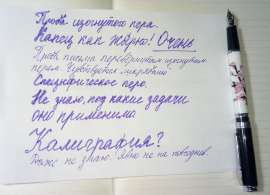 Проба изогнутого пера.
Капец как жирно! Очень
Проба письма перевёрнутым изогнутым
пером. Чувствуется микроввв
Специфическое перо.
Не знаю, под какие задачи
оно применимо
Калиграфия?
не знаю. явно не на повседнев.